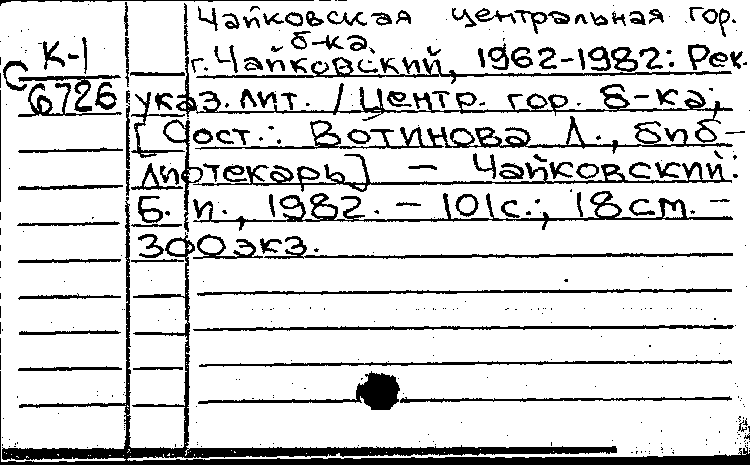 Чайковская центральная гор.
б-ка.
К-1
С 6726
г. Чайковский, 1962-1982: Рек.
указ. лит. / Центр. гор. б-ка;
[Сост.: Вотинова Л., биб-
лиотекарь] – Чайковский:
Б. и., 1982. – 101с.; 18см. –
300экз.